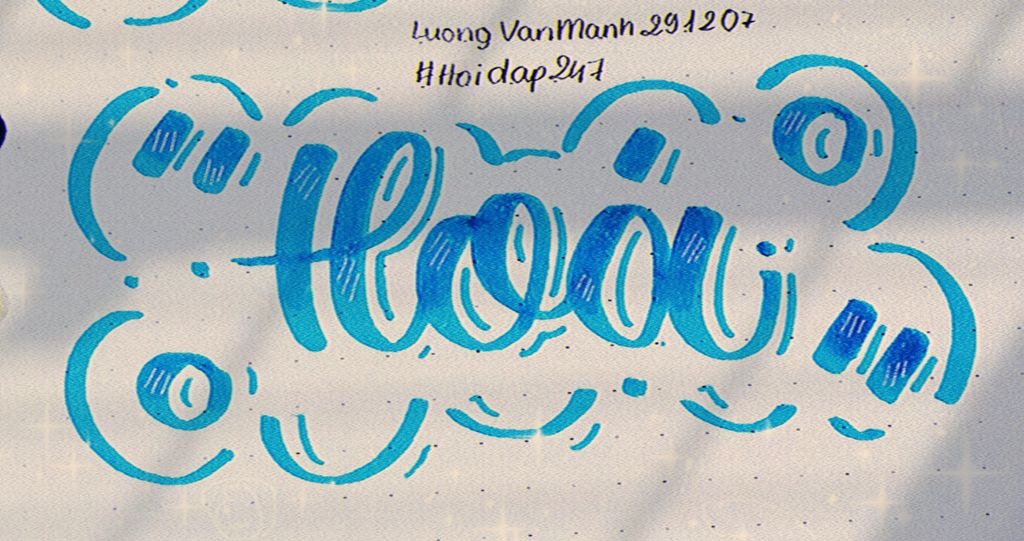 Luong VanManh 291207
#Hoidap247
Hoá